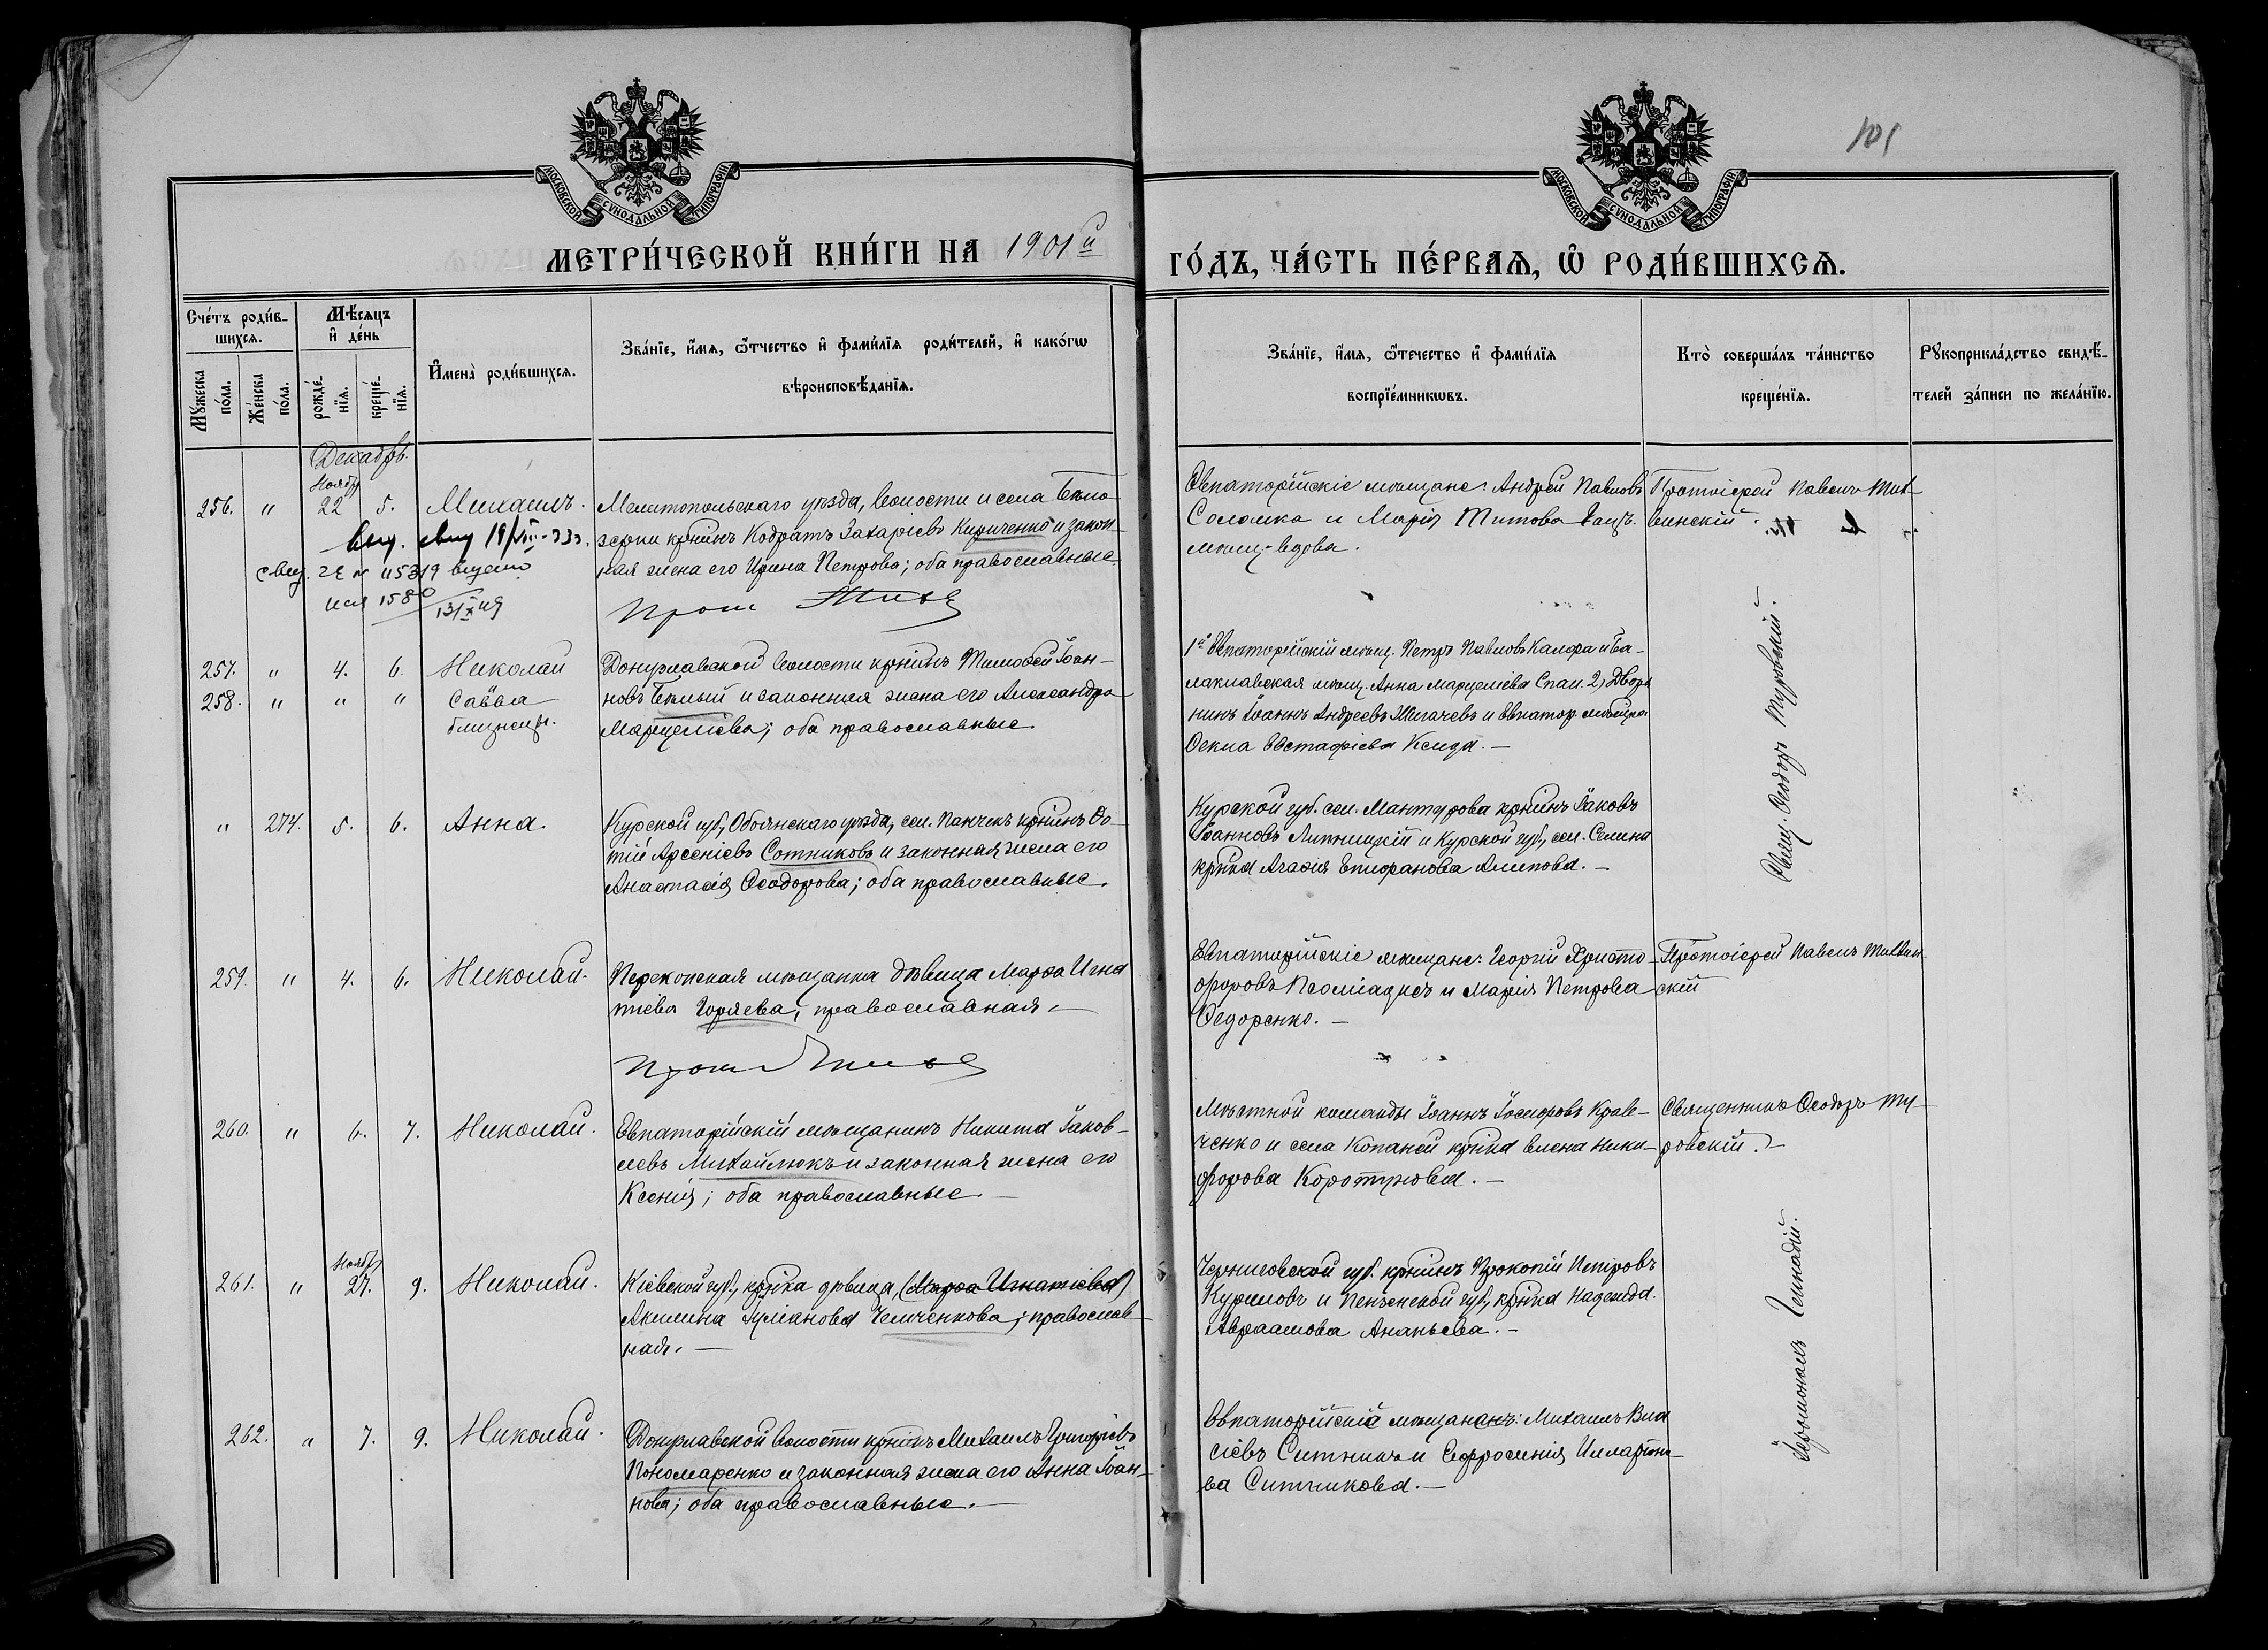 101
МОСКОВСКОЙ СѴНОДАЛЬНОЙ ТИПОГРАФІИ
МОСКОВСКОЙ СѴНОДАЛЬНОЙ ТИПОГРАФІИ
МЕТРИ́ЧЕСКОЙ КНИ́ГИ НА 1901й
ГО́ДЪ, ЧА́СТЬ ПЕ́РВАѦ, Ѽ РОДИ́ВШИХСѦ.
Сче́тъ роди́в-
шихсѧ.
Мꙋжеска по́ла.
Же́нска по́ла.
Мѣ́сѧцъ
и҆ де́нь
рожде́-
нїѧ.
креще́-
нїѧ.
И҆мена̀ роди́вшихсѧ.
Зва́нїе, и҆́мѧ, ѻ҆́тчество и҆ фами́лїѧ роди́телей, и҆ како́гѡ
вѣроисповѣ́данїѧ.
Зва́нїе, и҆́мѧ, ѻ҆́течество и҆ фами́лїѧ
воспрїе́мникѡвъ.
Кто̀ соверша́лъ та́инство
креще́нїѧ.
Рꙋкоприкла́дство свидѣ́-
телей за́писи по жела́нїю.
Декабрь.
Ноябр
256. " 22 5. Михаилъ.
Мелитопольскаго уѣзда, волости и села Бѣло-
зерки крнинъ Кодратъ Захаріевъ Кириченко и закон-
ная жена его Ирина Петрова; оба православные.
Прот
Евпаторійскіе мѣщане: Андрей Павловъ
Соломка и Марія Титова
мѣщ-вдова.
Протоіерей Павелъ Тит-
винскій.
257. " 4. 6. Николай
258. " " " Савва
близнецы.
Донузлавской волости крнинъ Тимоѳей Іоан-
новъ Бѣлый и законная жена его Александра
Марцеліева; оба православные
1е Евпаторійскій мѣщ. Петръ Павловъ Калфа и Ба-
лаклавская мѣщ. Анна Марцеліева Спаи. 2) Дворя
нинъ Іоаннъ Андреевъ Жигачевъ и Евпатор.
Ѳекла Евстафіева Ксида.—
" 274. 5. 6. Анна.
Курской губ., Обоянскаго уѣзда, сел. Панчекъ крнинъ Фо-
тій Арсеніевъ Сотниковъ и законная жена его
Анастасія Ѳеодорова; оба православные.
Курской губ. сел. Мантурова крнинъ Іаковъ
Іоанновъ Липницкій и Курской губ., сел. Селина
крнка Агаѳія Епифанова Алипова.—
Свящ. Ѳеодоръ Туровскій.
259. " 4. 6. Николай.
Перекопская мѣщанка дѣвица Марѳа Игна
тіева Горяева, православная.—
Прот
Евпаторійскіе мѣщане: Георгій Христо-
форовъ Псоміадисъ и Марія Петрова
Ѳедоренко.—
Протоіерей Павелъ Титвин
скій
260. " 6. 7. Николай.
Евпаторійскій мѣщанинъ Никита Іаков-
левъ Михайлюкъ и законная жена его
Ксенія; оба православные.—
Мѣстной команды Іоаннъ Іосифовъ Крав-
ченко и села Копаней крнка Елена Ники-
форова Коротунова.—
Священникъ Ѳеодоръ Ту-
ровскій.
Ноябр
261. " 27. 9. Николай.
Кіевской губ., крнка дѣвица, (Марѳа Игнатіева)
Акилина Іуліанова Чемченкова; православ-
ная.—
Черниговской губ. крнинъ Прокопій Петровъ
Куриловъ и Пензенской губ., крнка Надежда
Авраамова Ананьева.—
Іеромонахъ Геннадій.
262. " 7. 9. Николай.
Донузлавской волости крнинъ Михаилъ Григоріевъ
Пономаренко и законная жена его Анна Іоан-
нова; оба православные.—
Евпаторійскіе мѣщананъ: Михаилъ Вла
сіевъ Ситникъ и Евфросинія Илларіоно-
ва Ситникова.—